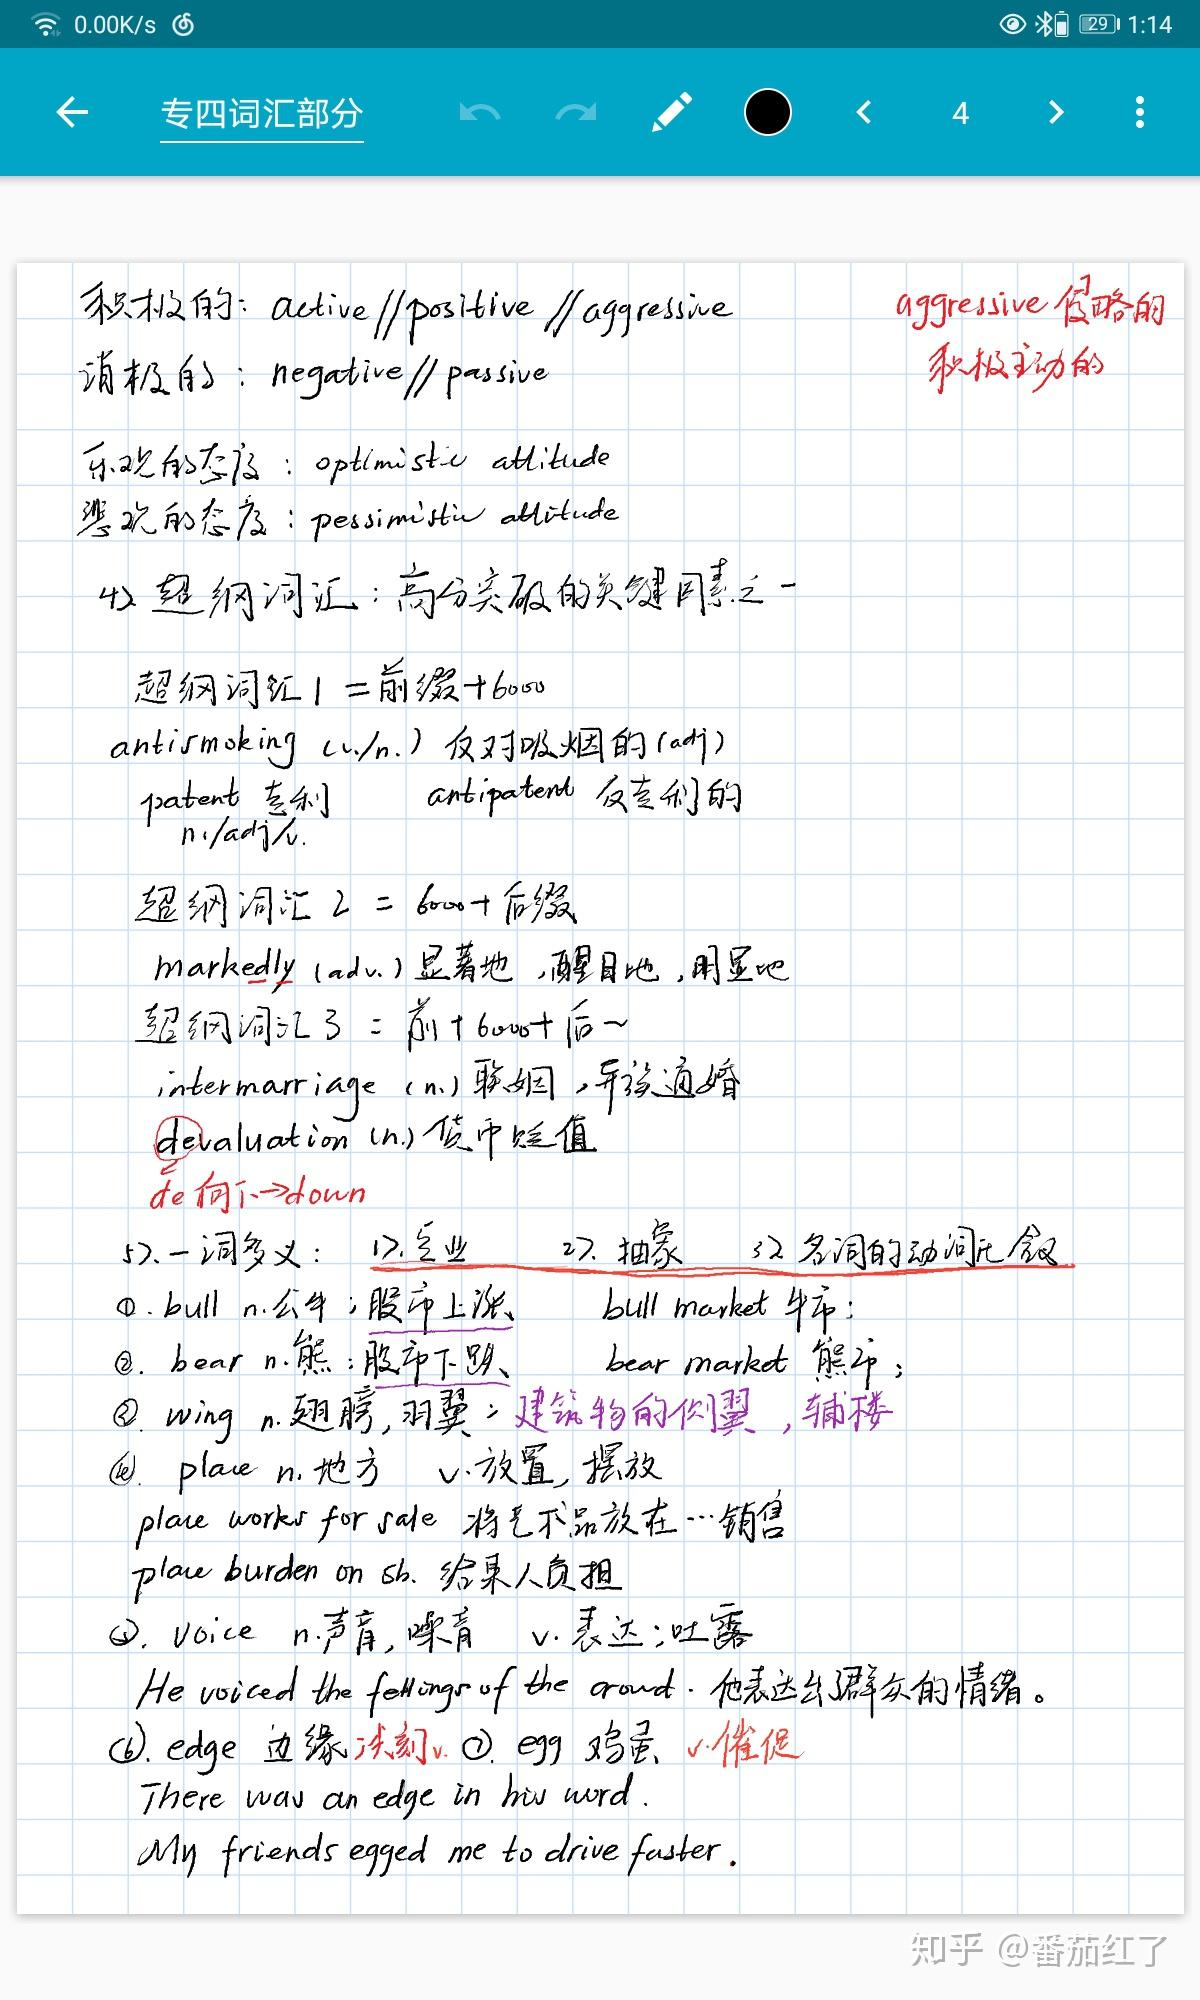 0.00K/s 29 1:14
专四词汇部分 4
积极的: active//positive //aggressive
aggressive 侵略的
积极主动的
消极的: negative// passive
乐观的态度: optimistic attitude
悲观的态度: pessimistic attitude
4>. 超纲词汇: 高分突破的关键因素之一
超纲词汇1 = 前缀+6000
antismoking (v./n.) 反对吸烟的(adj)
patent 专利 antipatent 反专利的
n./adj/v.
超纲词汇2 = 6000+后缀
markedly (adv.) 显著地,醒目地,明显地
超纲词汇3 = 前+6000+后~
intermarriage (n.) 联姻,异族通婚
devaluation (n.) 货币贬值
de 向下→down
5>. 一词多义: 1>. 专业 2>. 抽象 3> 名词的动词化含义
①. bull n.公牛;股市上涨、 bull market 牛市;
②. bear n.熊;股市下跌、 bear market 熊市;
③ wing n.翅膀,羽翼; 建筑物的侧翼,辅楼
④. place n.地方 v.放置,摆放
place works for sale 将艺术品放在…销售
place burden on sb. 给某人负担
⑤. voice n.声音,噪音 v.表达;吐露
He voiced the fellings of the crowd. 他表达出了群众的情绪。
⑥. edge 边缘 尖刻v. ⑦. egg 鸡蛋 v.催促
There was an edge in his word.
My friends egged me to drive faster.
知乎 @番茄红了